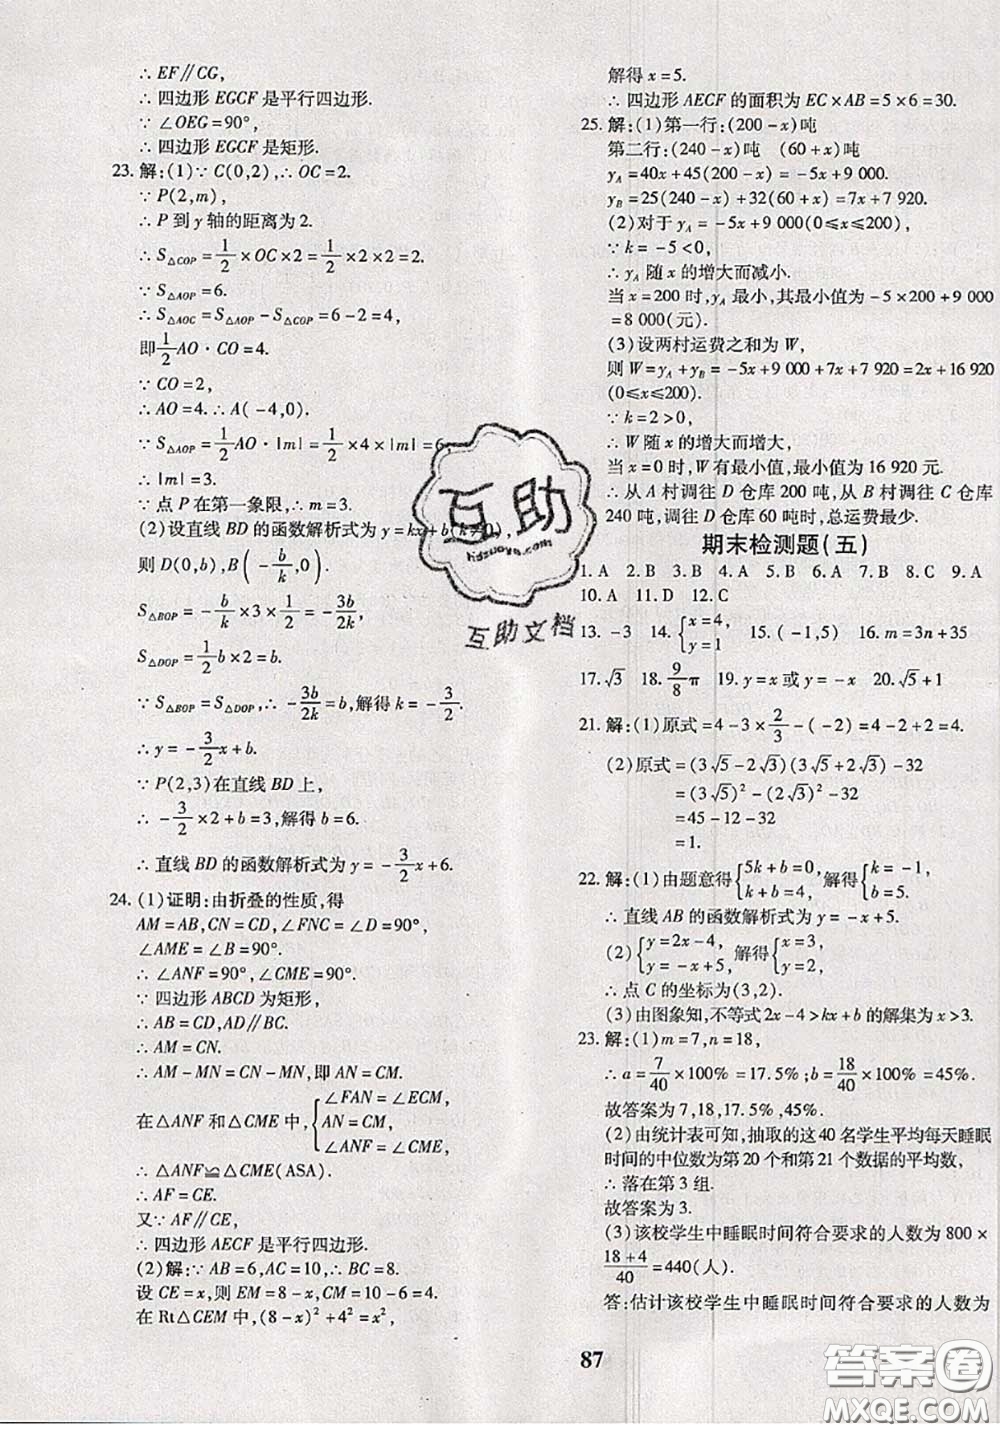 ∴ EF∥CG,
∴ 四边形 EGCF 是平行四边形.
∵ ∠OEG=90°,
∴ 四边形 EGCF 是矩形.
23. 解:(1)∵ C(0,2),∴ OC=2.
∵ P(2,m),
∴ P 到 y 轴的距离为 2.
∴ S△COP=1/2×OC×2=1/2×2×2=2.
∵ S△AOP=6.
∴ S△AOC=S△AOP-S△COP=6-2=4,
即1/2AO·CO=4.
∵ CO=2,
∴ AO=4.∴ A(-4,0).
∵ S△AOP=1/2AO·|m|=1/2×4×|m|=6
∴ |m|=3.
∵ 点 P 在第一象限,∴ m=3.
(2)设直线 BD 的函数解析式为 y=kx+b(k≠0),
则 D(0,b),B(-b/k,0).
S△BOP=-b/k×3×1/2=-3b/2k,
S△DOP=1/2b×2=b.
∵ S△BOP=S△DOP,∴ -3b/2k=b,解得 k=-3/2.
∴ y=-3/2x+b.
∵ P(2,3)在直线 BD 上,
∴ -3/2×2+b=3,解得 b=6.
∴ 直线 BD 的函数解析式为 y=-3/2x+6.
24. (1)证明:由折叠的性质,得
AM=AB,CN=CD,∠FNC=∠D=90°,
∠AME=∠B=90°.
∴ ∠ANF=90°,∠CME=90°.
∵ 四边形 ABCD 为矩形,
∴ AB=CD,AD∥BC.
∴ AM=CN.
∴ AM-MN=CN-MN,即 AN=CM.
在△ANF 和△CME 中,{∠FAN=∠ECM,
AN=CM,
∠ANF=∠CME,
∴ △ANF≌△CME(ASA).
∴ AF=CE.
又∵ AF∥CE,
∴ 四边形 AECF 是平行四边形.
(2)解:∵ AB=6,AC=10,∴ BC=8.
设 CE=x,则 EM=8-x,CM=10-6=4.
在 Rt△CEM 中,(8-x)²+4²=x²,
解得 x=5.
∴ 四边形 AECF 的面积为 EC×AB=5×6=30.
25. 解:(1)第一行:(200-x)吨
第二行:(240-x)吨 (60+x)吨
yA=40x+45(200-x)=-5x+9 000.
yB=25(240-x)+32(60+x)=7x+7 920.
(2)对于 yA=-5x+9 000(0≤x≤200),
∵ k=-5<0,
∴ yA 随 x 的增大而减小.
当 x=200 时,yA 最小,其最小值为-5×200+9 000
=8 000(元).
(3)设两村运费之和为 W,
则 W=yA+yB=-5x+9 000+7x+7 920=2x+16 920
(0≤x≤200).
∵ k=2>0,
∴ W 随 x 的增大而增大,
当 x=0 时,W 有最小值,最小值为 16 920 元.
∴ 从 A 村调往 D 仓库 200 吨,从 B 村调往 C 仓库
240 吨,调往 D 仓库 60 吨时,总运费最少.
期末检测题(五)
1. A 2. B 3. B 4. A 5. B 6. A 7. B 8. C 9. A
10. A 11. D 12. C
13. -3 14. {x=4, y=1 15. (-1,5) 16. m=3n+35
17. √3 18. 9/8π 19. y=x 或 y=-x 20. √5+1
21. 解:(1)原式=4-3×2/3-(-2)=4-2+2=4.
(2)原式=(3√5-2√3)(3√5+2√3)-32
=(3√5)²-(2√3)²-32
=45-12-32
=1.
22. 解:(1)由题意得{5k+b=0, k+b=4, 解得{k=-1, b=5.
∴ 直线 AB 的函数解析式为 y=-x+5.
(2){y=2x-4, y=-x+5, 解得{x=3, y=2,
∴ 点 C 的坐标为(3,2).
(3)由图象知,不等式 2x-4>kx+b 的解集为 x>3.
23. 解:(1)m=7,n=18,
∴ a=7/40×100%=17.5%;b=18/40×100%=45%.
故答案为 7,18,17.5%,45%.
(2)由统计表可知,抽取的这 40 名学生平均每天睡眠
时间的中位数为第 20 个和第 21 个数据的平均数,
∴ 落在第 3 组.
故答案为 3.
(3)该校学生中睡眠时间符合要求的人数为 800×
18+4/40=440(人).
答:估计该校学生中睡眠时间符合要求的人数为
87
互助
hdzuoye.com
互助文档
答案圈
MXQE.COM